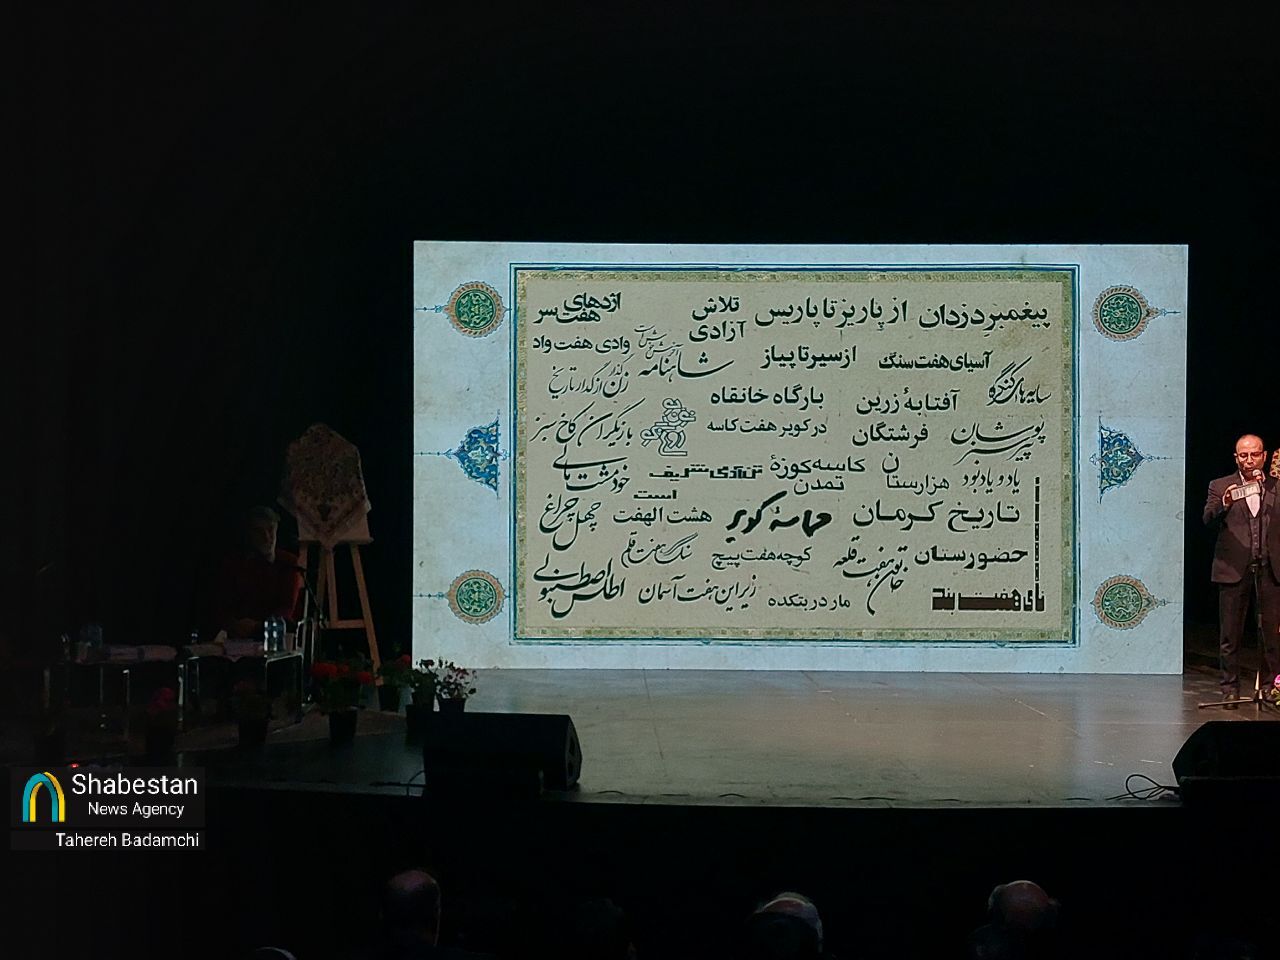 پیغمبر دزدان
از پاریز تا پاریس
تلاش
آزادی
اژدهای
هفت سر
آسیای هفت سنگ
از سیر تا پیاز
شاهنامه
وادی هفت واد
سایه های کنگره
آفتابهٔ زرین
فرشتگان
بارگاه خانقاه
در کویر هفت کاسه
نون جو و دوغ گو
زن
گذار از گدار تاریخ
بازیگران کاخ سبز
پیر سبز پوشان
یاد و یادبود
هزارستان
کاسه کوزهٔ
تمدن
تن آدمی شریف
است
خودمشت مالی
تاریخ کرمان
حماسهٔ کویر
هشت الهفت
چهل چراغ
حضورستان
خاتون هفت قلعه
کوچه هفت پیچ
سنگ هفت قلم
نای هفت بند
مار در بتکده
زیر این هفت آسمان
اطلس استنبولی
Shabestan
News Agency
Tahereh Badamchi